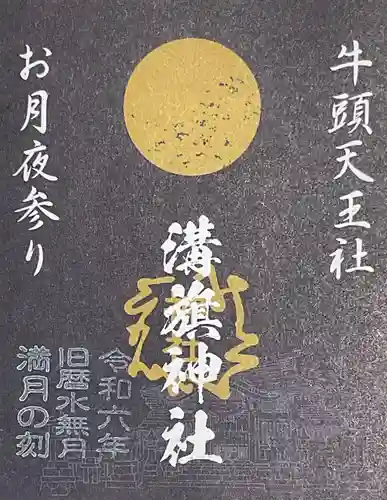 牛頭天王社
溝旗神社
お月夜参り
令和六年
旧暦水無月
満月の刻